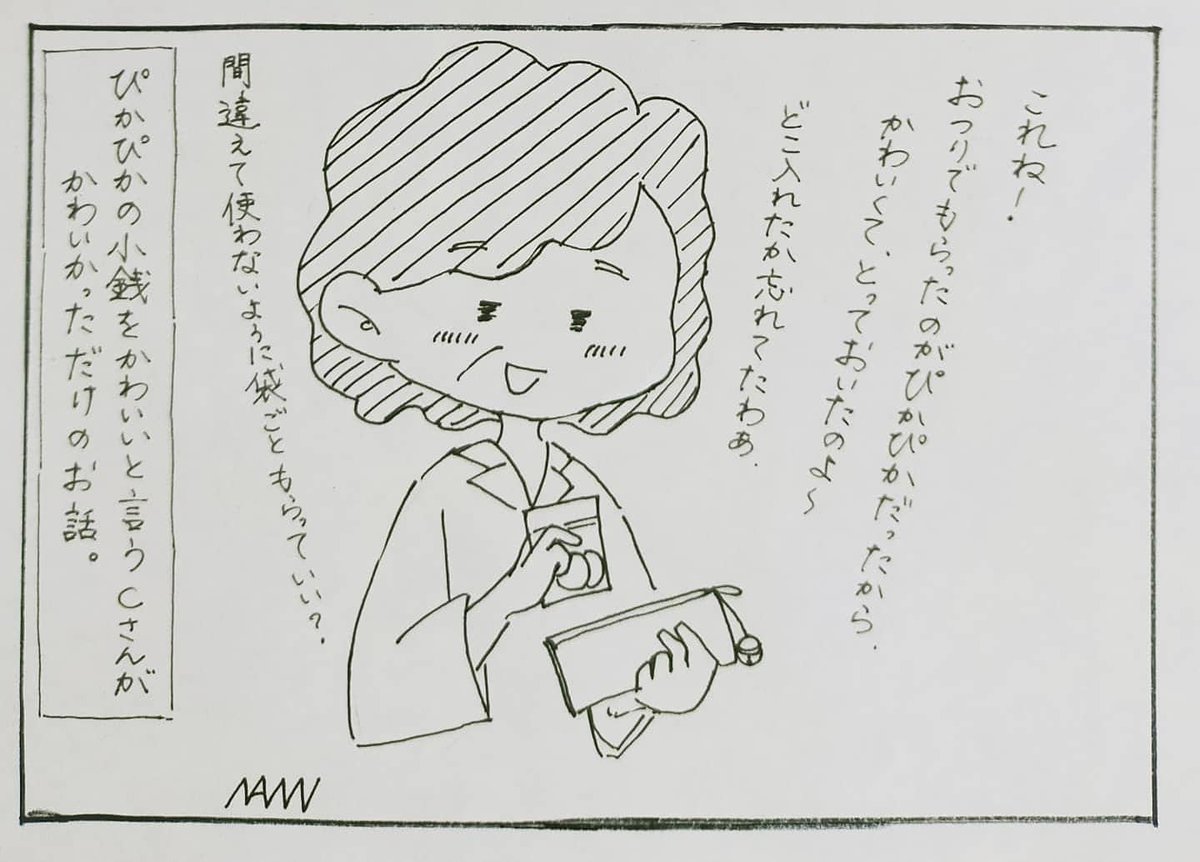 これね!
おつりでもらったのがぴかぴかだったから、
かわいくて、とっておいたのよ〜
どこ入れたか忘れてたわぁ.
間違えて使わないように袋ごともらっていい?.
ぴかぴかの小銭をかわいいと言うCさんが
かわいかっただけのお話。